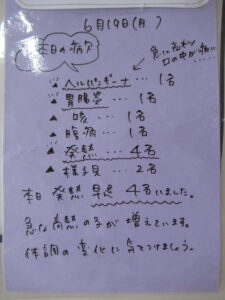 6月19日(月)
本日の病欠
急に高ネツ
口の中が痛い…
▲ ヘルパンギーナ … 1名
▲ 胃腸炎 … 1名
▲ 咳 … 1名
▲ 腹痛 … 1名
▲ 発熱 … 4名
▲ 様子見 … 2名
本日 発熱 早退 4名いました。
急な高熱の子が増えています。
体調の変化に気をつけましょう。